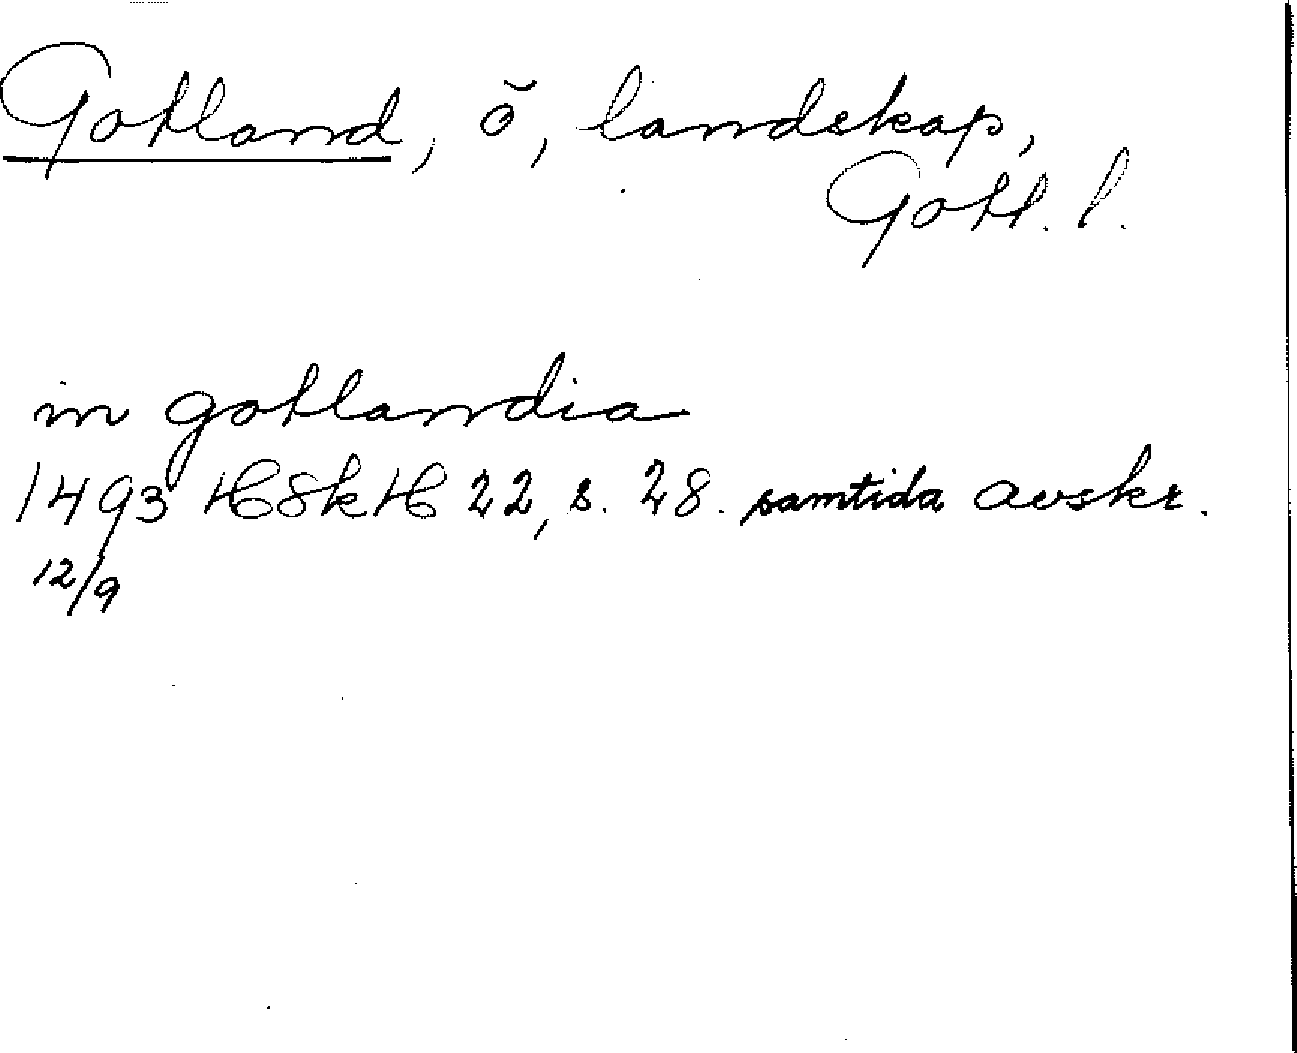 Gotland, ö, landskap,
Gotl. l.
in gotlandia
1493 HSkH 22, s. 28. samtida avskr.
12/9